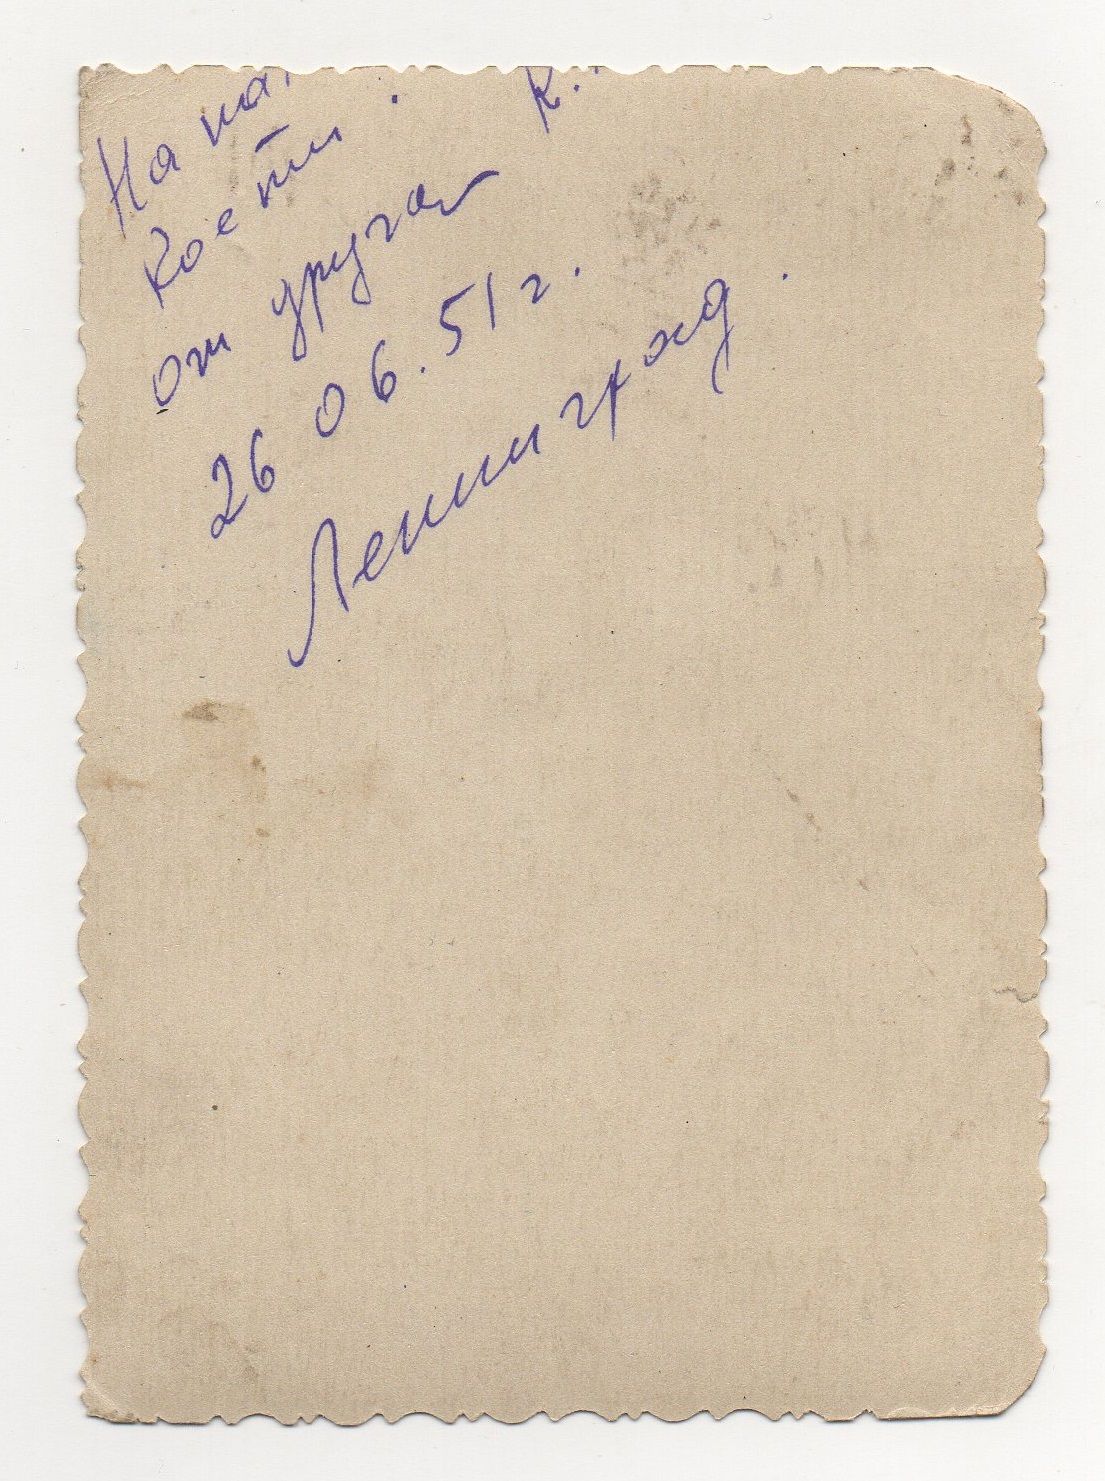 На па
Кости.
от друга К.
26 06. 51 г.
Ленинград.